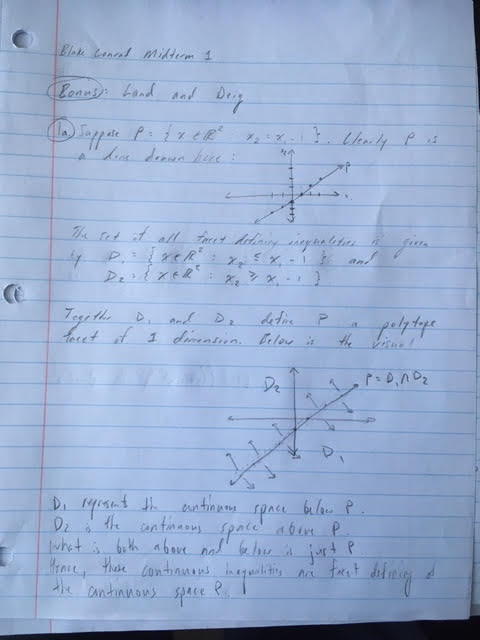 Blake Conrad Midterm 1
Bonus: Land and Doig
1a Suppose P = { x ∈ ℝ² x₂ = x₁ - 1 }. Clearly P is
a line drawn here:
x₂
P
x₁
The set of all facet defining inequalities is given
by D₁ = { x ∈ ℝ² : x₂ ≤ x₁ - 1 } and
D₂ = { x ∈ ℝ² : x₂ ≥ x₁ - 1 }
Together D₁ and D₂ define P a polytope
facet of 1 dimension. Below is the visual
D₂
P = D₁ ∩ D₂
D₁
D₁ represent the continuous space below P.
D₂ is the continuous space above P.
What is both above and below is just P
Hence, these continuous inequalities are facet defining of
the continuous space P.